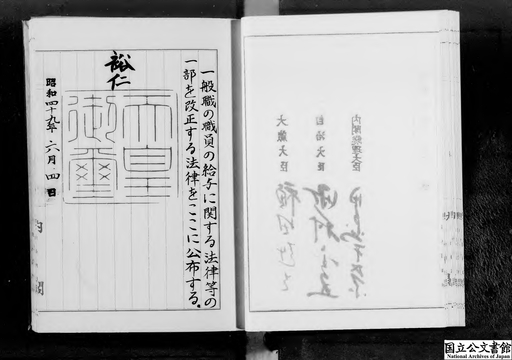 一般職の職員の給与に関する法律等の
一部を改正する法律をここに公布する。
裕仁
天皇
御璽
昭和四十九年六月四日
内閣
内閣総理大臣
自治大臣
大蔵大臣
国立公文書館
National Archives of Japan